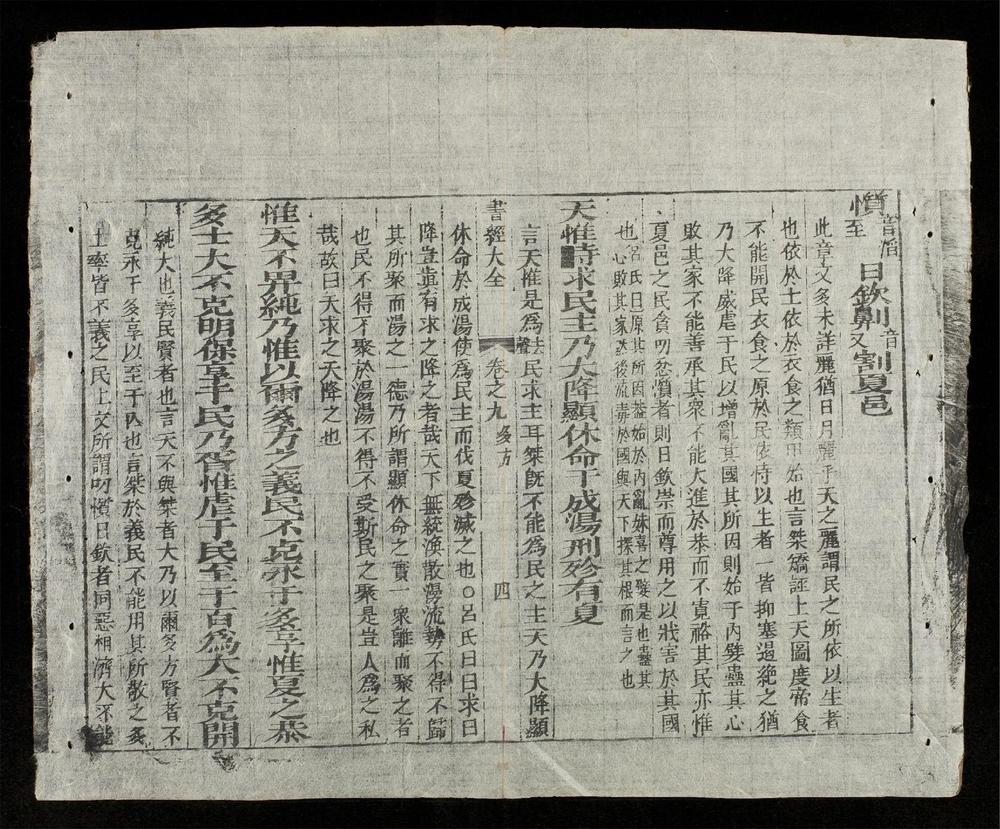 懫音淄至日欽劓音又割夏邑
此章文多未詳麗猶日月麗乎天之麗謂民之所依以生者
也依於土依於衣食之類甲始也言桀矯誣上天圖度帝食
不能開民衣食之原於民依恃以生者一皆抑塞遏絶之猶
乃大降威虐于民以增亂其國其所因則始于內嬖蠱其心
敗其家不能善承其衆不能大進於恭而不寬裕其民亦惟
夏邑之民貪叨忿懫者則日欽崇而尊用之以戕害於其國
也呂氏曰原其所因葢始於內亂妹喜之嬖是也蠱其
心敗其家然後流毒於國與天下探其根而言之也
天惟時求民主乃大降顯休命于成湯刑殄有夏
言天惟是爲去聲民求主耳桀旣不能爲民之主天乃大降顯
書經大全 卷之九 多方 四
休命於成湯使爲民主而伐夏殄滅之也○呂氏曰曰求曰
降豈眞有求之降之者哉天下無統渙散漫流勢不得不歸
其所聚而湯之一德乃所謂顯休命之實一衆離而聚之者
也民不得不聚於湯湯不得不受斯民之聚是豈人爲之私
哉故曰天求之天降之也
惟天不畀純乃惟以爾多方之義民不克永于多享惟夏之恭
多士大不克明保享于民乃胥惟虐于民至于百爲大不克開
純大也義民賢者也言天不與桀者大乃以爾多方賢者不
克永于多享以至于亡也言桀於義民不能用其所敬之多
士率皆不義之民上文所謂叨懫日欽者同惡相濟大不能